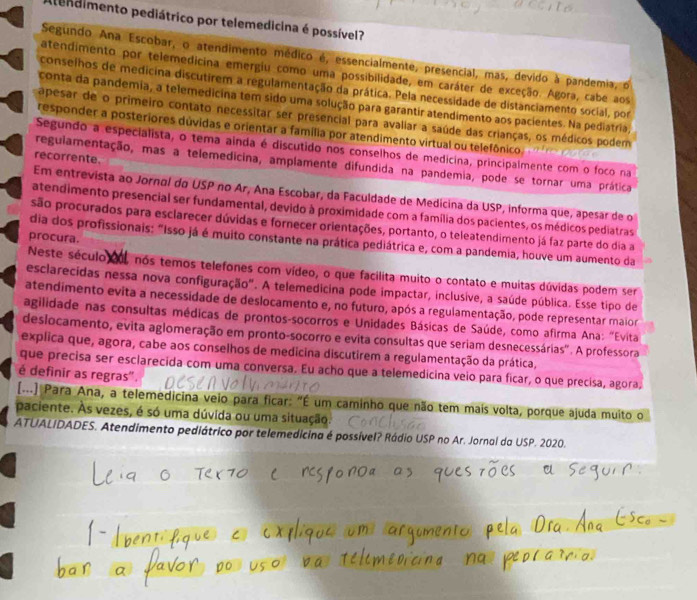 Atendimento pediátrico por telemedicina é possível?
Segundo Ana Escobar, o atendimento médico é, essencialmente, presencial, mas, devido à pandemia, o
atendimento por telemedicina emergiu como uma possibilidade, em caráter de exceção. Agora, cabe aos
conselhos de medicina discutirem a regulamentação da prática. Pela necessidade de distanciamento social, por
conta da pandemia, a telemedicina tem sido uma solução para garantir atendimento aos pacientes. Na pediatria,
apesar de o primeiro contato necessitar ser presencial para avaliar a saúde das crianças, os médicos podem
responder a posteriores dúvidas e orientar a família por atendimento virtual ou telefônico.
Segundo a especialista, o tema ainda é discutido nos conselhos de medicina, principalmente com o foco na
regulamentação, mas a telemedicina, amplamente difundida na pandemia, pode se tornar uma prática
recorrente.
Em entrevista ao Jornal da USP no Ar, Ana Escobar, da Faculdade de Medicina da USP, informa que, apesar de o
atendimento presencial ser fundamental, devido à proximidade com a família dos pacientes, os médicos pediatras
são procurados para esclarecer dúvidas e fornecer orientações, portanto, o teleatendimento já faz parte do dia a
dia dos profissionais: "Isso já é muito constante na prática pediátrica e, com a pandemia, houve um aumento da
procura.
Neste século XXI, nós temos telefones com vídeo, o que facilita muito o contato e muitas dúvidas podem ser
esclarecidas nessa nova configuração". A telemedicina pode impactar, inclusive, a saúde pública. Esse tipo de
atendimento evita a necessidade de deslocamento e, no futuro, após a regulamentação, pode representar maior
agilidade nas consultas médicas de prontos-socorros e Unidades Básicas de Saúde, como afirma Ana: "Evita
deslocamento, evita aglomeração em pronto-socorro e evita consultas que seriam desnecessárias". A professora
explica que, agora, cabe aos conselhos de medicina discutirem a regulamentação da prática,
que precisa ser esclarecida com uma conversa. Eu acho que a telemedicina veio para ficar, o que precisa, agora,
é definir as regras". Desenvolvimento
[...] Para Ana, a telemedicina veio para ficar: "É um caminho que não tem mais volta, porque ajuda muito o
paciente. Às vezes, é só uma dúvida ou uma situação. Conclusão
ATUALIDADES. Atendimento pediátrico por telemedicina é possível? Rádio USP no Ar. Jornal da USP. 2020.
Leia o Texto e responda as questões a seguir.
1- Identifique e explique um argumento pela Dra. Ana Esco-
bar a favor do uso da telemedicina na pediatria.